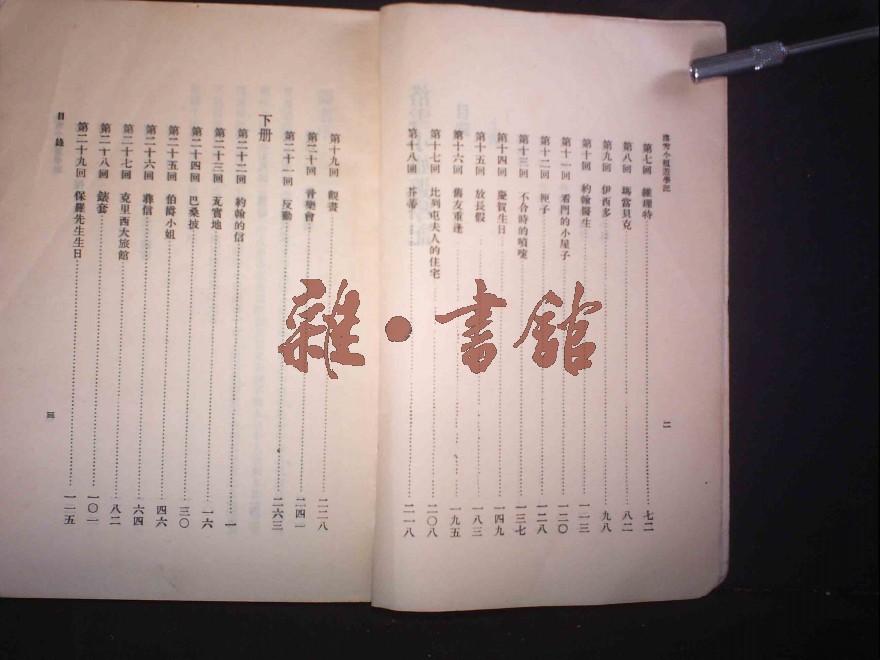 洛雪小姐遊學記
第七回 維理特 七二
第八回 瑪當貝克 八二
第九回 伊西多 九八
第十回 約翰醫生 一一三
第十一回 看門的小屋子 一二〇
第十二回 匣子 一二八
第十三回 不合時的噴嚏 一三七
第十四回 慶賀生日 一四九
第十五回 放長假 一八三
第十六回 舊友重逢 一九五
第十七回 比列屯夫人的住宅 二〇八
第十八回 芥蒂 二一八
二
第十九回 觀畫 二二八
第二十回 音樂會 二四一
第二十一回 反動 二六三
下册
第二十二回 約翰的信 一
第二十三回 瓦實地 一六
第二十四回 巴桑披 三〇
第二十五回 伯爵小姐 四六
第二十六回 葬信 六四
第二十七回 克里西大旅館 八二
第二十八回 錶套 一〇一
第二十九回 保羅先生生日 一一五
目錄
三
雜·書館